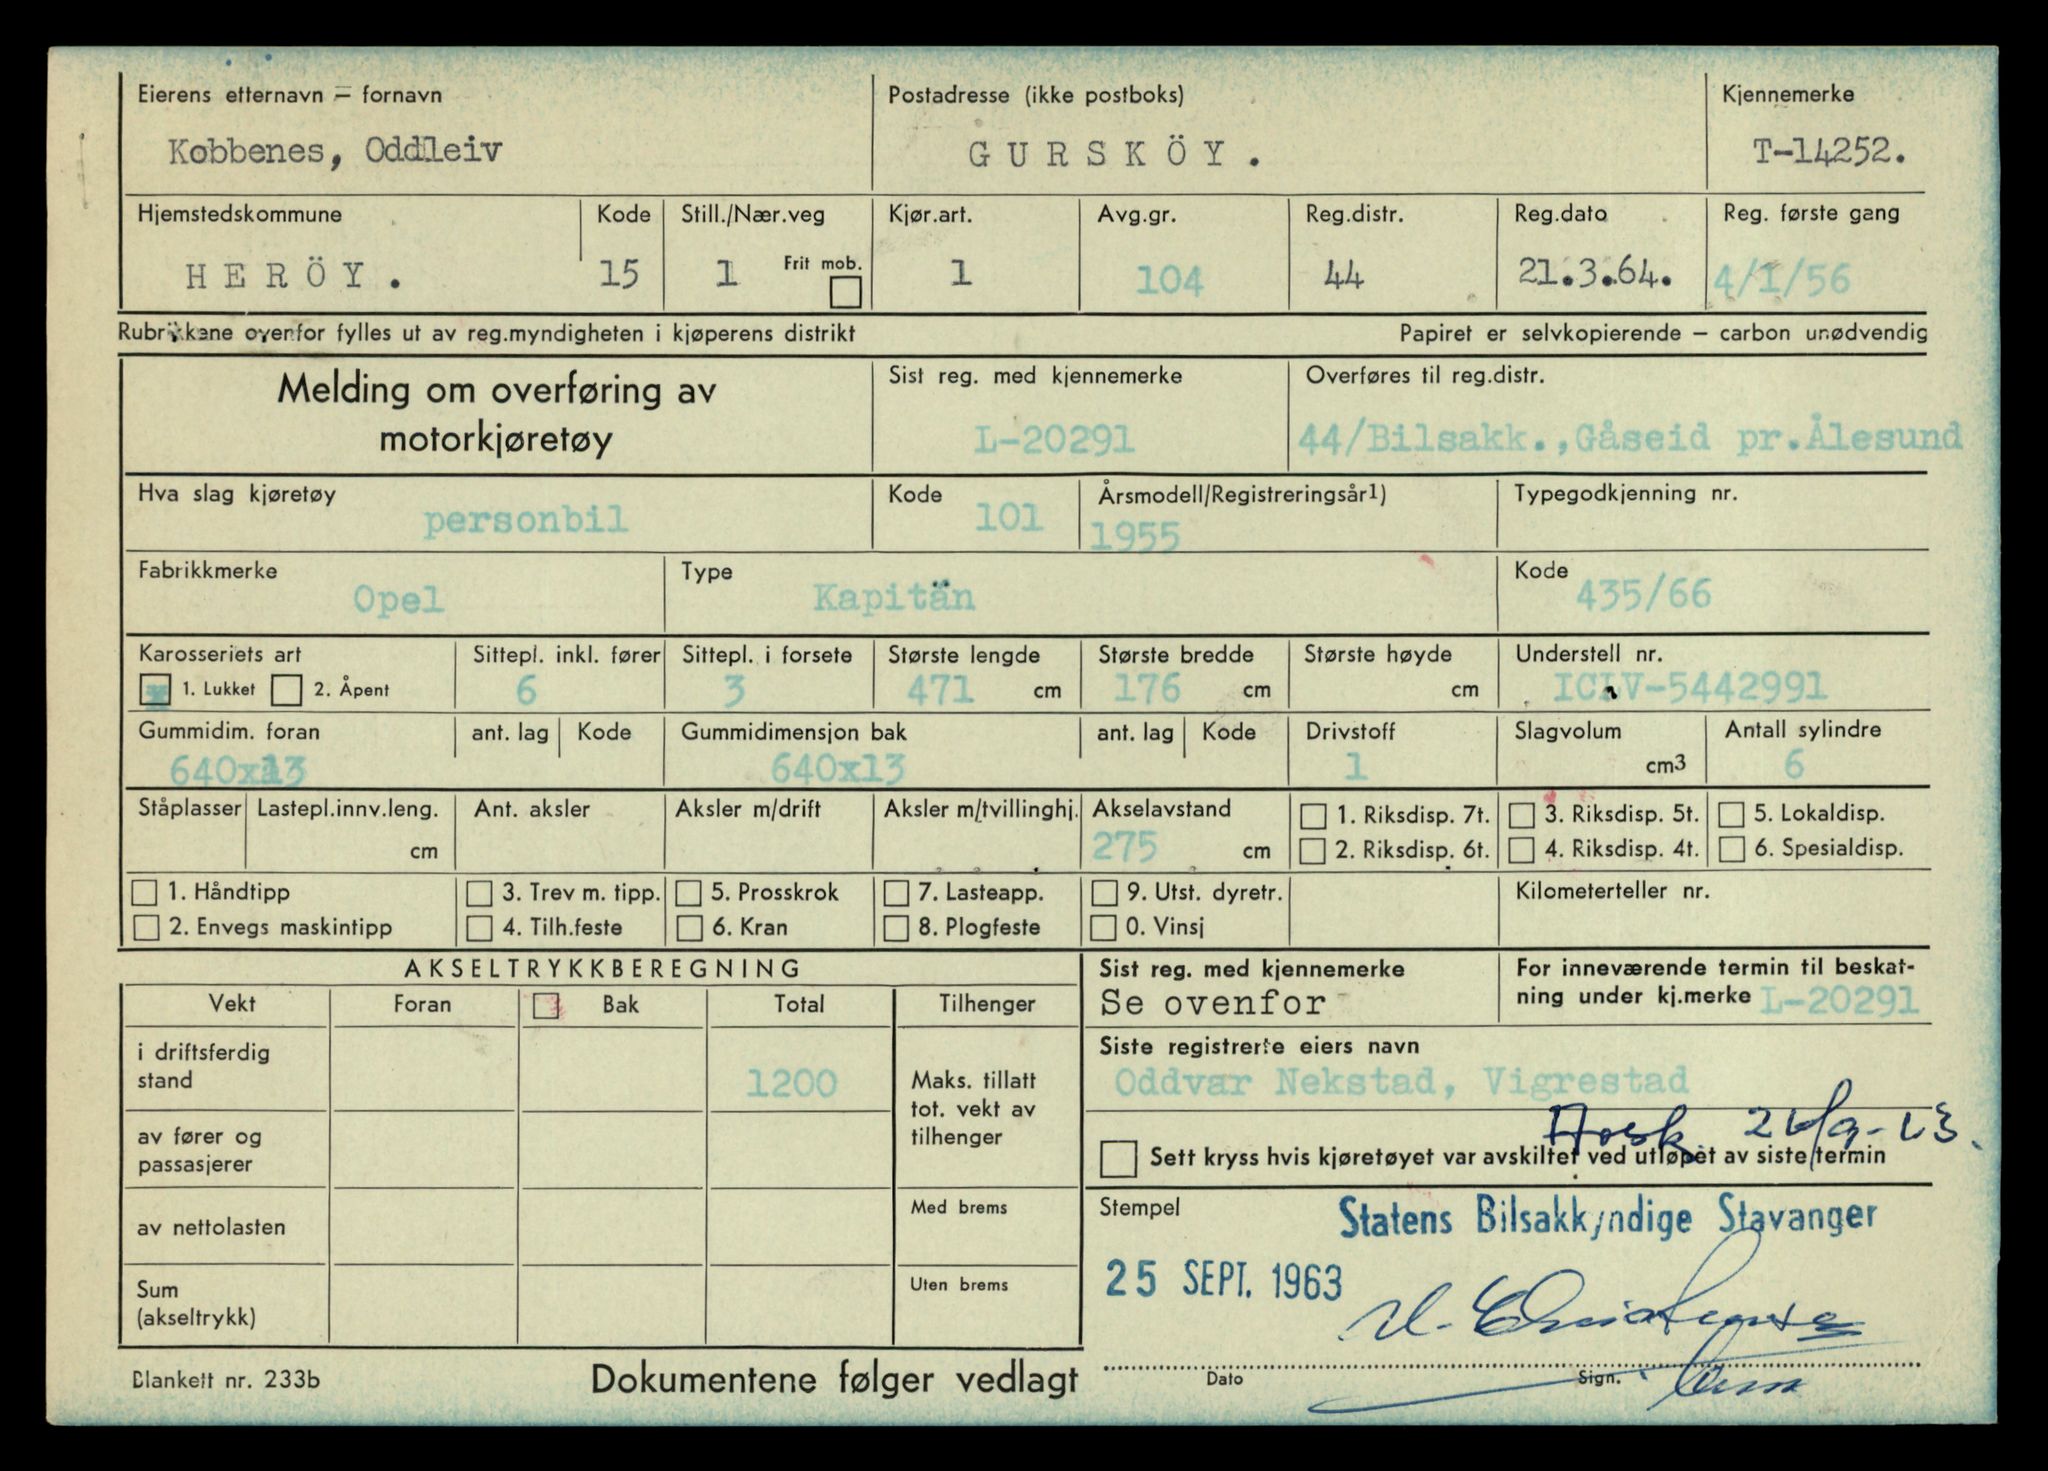 Eierens etternavn – fornavn Postadresse (ikke postboks) Kjennemerke
Kobbenes, Oddleiv GURSKÖY. T-14252.
Hjemstedskommune Kode Still./Nær.veg Kjør.art. Avg.gr. Reg.distr. Reg.dato Reg. første gang
HERÖY. 15 1 Frit mob. 1 104 44 21.3.64. 4/1/56
Rubrikkene ovenfor fylles ut av reg.myndigheten i kjøperens distrikt Papiret er selvkopierende – carbon unødvendig
Melding om overføring av
motorkjøretøy
Sist reg. med kjennemerke Overføres til reg.distr.
L-20291 44/Bilsakk.,Gåseid pr.Ålesund
Hva slag kjøretøy Kode Årsmodell/Registreringsår1) Typegodkjenning nr.
personbil 101 1955
Fabrikkmerke Type Kode
Opel Kapitän 435/66
Karosseriets art Sittepl. inkl. fører Sittepl. i forsete Største lengde Største bredde Største høyde Understell nr.
x 1. Lukket 2. Åpent 6 3 471 cm 176 cm cm ICLV-5442991
Gummidim. foran ant. lag Kode Gummidimensjon bak ant. lag Kode Drivstoff Slagvolum Antall sylindre
640x13 640x13 1 cm3 6
Ståplasser Lastepl.innv.leng. Ant. aksler Aksler m/drift Aksler m/tvillinghj. Akselavstand 1. Riksdisp. 7t. 3. Riksdisp. 5t. 5. Lokaldisp.
cm 275 cm 2. Riksdisp. 6t. 4. Riksdisp. 4t. 6. Spesialdisp.
1. Håndtipp 3. Trev m. tipp. 5. Prosskrok 7. Lasteapp. 9. Utst. dyretr. Kilometerteller nr.
2. Envegs maskintipp 4. Tilh.feste 6. Kran 8. Plogfeste 0. Vinsj
AKSELTRYKKBEREGNING
Vekt Foran Bak Total Tilhenger
i driftsferdig
stand
1200
Maks. tillatt
tot. vekt av
tilhenger
av fører og
passasjerer
av nettolasten
Med brems
Sum
(akseltrykk)
Uten brems
Sist reg. med kjennemerke
Se ovenfor
For inneværende termin til beskat-
ning under kj.merke L-20291
Siste registrerte eiers navn
Oddvar Nekstad, Vigrestad
Sett kryss hvis kjøretøyet var avskiltet ved utløpet av siste termin
Stempel
Statens Bilsakkyndige Stavanger
25 SEPT. 1963
Dato Sign.
Blankett nr. 233b Dokumentene følger vedlagt